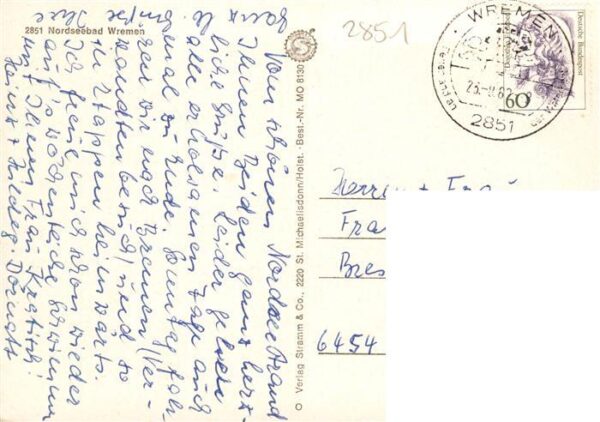 2851 Nordseebad Wremen
2851
WREMEN
2851
Deutsche Bundespost
60
Vom schönen Nordseestrand
Ihnen Beiden ganz herz-
liche Grüße. Leider gehen
alle erholsamen Tage auch
mal zu Ende. Sonntag fah-
ren wir nach Bremen (Ver-
wandtenbesuch) und so
in Etappen heimwärts.
Ich freue mich schon wieder
auf's wöchentliche
mit Ihnen Frau
Heinz +
Ihre
© Verlag Stramm & Co., 2220 St. Michaelisdonn/Holst. · Best.-Nr. MO 8130
Herrn + Frau
Fra
Bres
6454